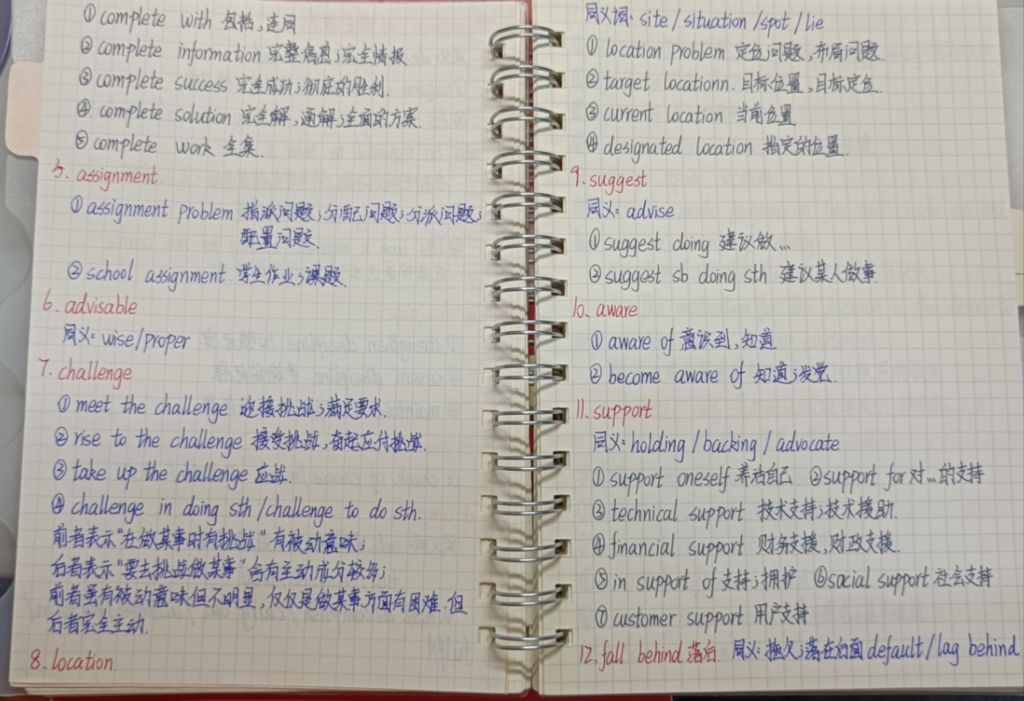 ① complete with 包括,连同
② complete information 完整信息;完全情报
③ complete success 完全成功;彻底的胜利.
④ complete solution 完全解,通解;全面的方案.
⑤ complete work 全集.
5. assignment
① assignment problem 指派问题;分配问题;分派问题;
配置问题.
② school assignment 学生作业;课题.
6. advisable
同义: wise/proper
7. challenge
① meet the challenge 迎接挑战;满足要求.
② rise to the challenge 接受挑战,奋起应付挑战.
③ take up the challenge 应战.
④ challenge in doing sth/challenge to do sth.
前者表示"在做某事时有挑战"有被动意味;
后者表示"要去挑战做某事"含有主动成分较多;
前者虽有被动意味但不明显,仅仅是做某事方面有困难.但
后者完全主动.
8. location
同义词: site/situation/spot/lie
① location problem 定位问题,布局问题.
② target locationn. 目标位置,目标定位.
③ current location 当前位置
④ designated location 指定的位置.
9. suggest
同义: advise
① suggest doing 建议做...
② suggest sb doing sth 建议某人做事
10. aware
① aware of 意识到,知道
② become aware of 知道;发觉.
11. support
同义: holding/backing/advocate
① support oneself 养活自己 ② support for 对...的支持
③ technical support 技术支持;技术援助.
④ financial support 财务支援,财政支援.
⑤ in support of 支持;拥护 ⑥ social support 社会支持
⑦ customer support 用户支持
12. fall behind 落后 同义: 拖欠;落在后面 default/lag behind